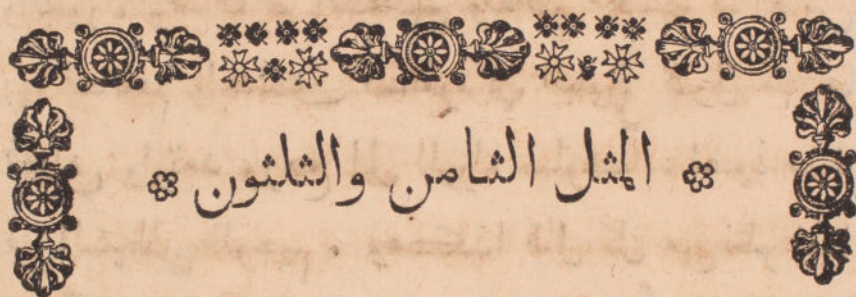 المثل الثامن والثلثون